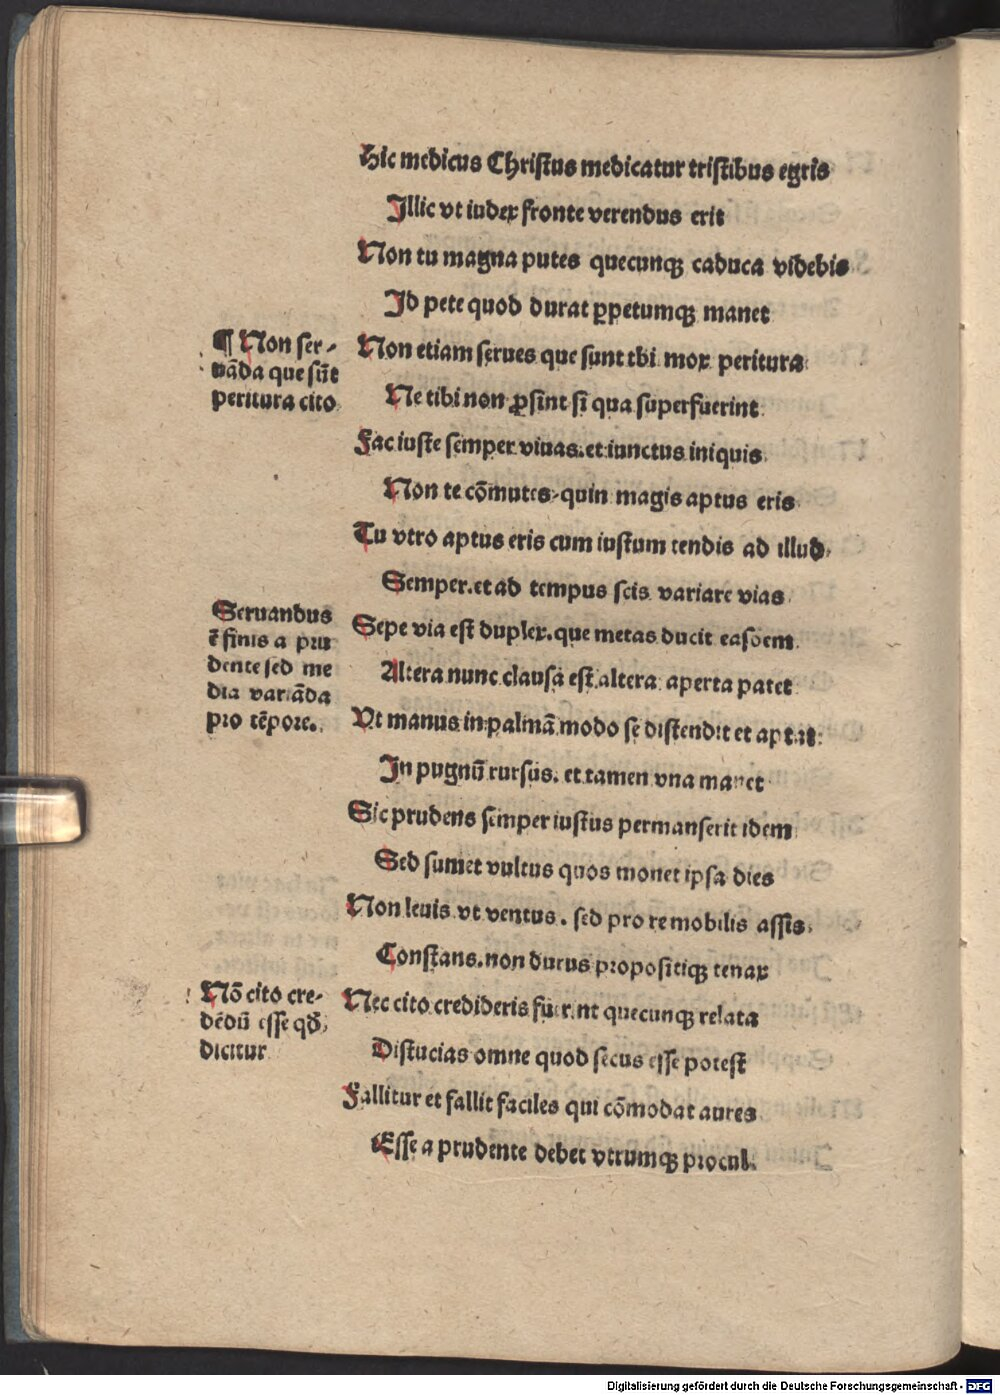 Hic medicus Christus medicatur tristibus egris
Illic vt iudex fronte verendus erit
Non tu magna putes quecunqꝫ caduca videbis
Id pete quod durat ꝑpetumqꝫ manet
¶ Non ser-
vāda que sūt
peritura cito
Non etiam serues que sunt tbi mox peritura
Ne tibi non ꝓsint si qua superfuerint
Fac iuste semper viuas. et iunctus iniquis
Non te cōmutes quin magis aptus eris
Tu vtro aptus eris cum iustum tendis ad illud
Semper. et ad tempus scis variare vias
Seruandus
ē finis a pru
dente sed me
dia variāda
pro tēpore.
Sepe via est duplex. que metas ducit easdem
Altera nunc clausa est altera aperta patet
Vt manus in palmā modo se distendit et aptat:
In pugnū rursus. et tamen vna manet
Sic prudens semper iustus permanserit idem
Sed sumet vultus quos monet ipsa dies
Non leuis vt ventus. sed pro re mobilis assis
Constans. non durus propositiqꝫ tenax
Nō cito cre-
dēdū esse qđ
dicitur
Nec cito credideris fuerint quecunqꝫ relata
Distucias omne quod secus esse potest
Fallitur et fallit faciles qui cōmodat aures
Esse a prudente debet vtrumqꝫ procul.
Digitalisierung gefördert durch die Deutsche Forschungsgemeinschaft - DFG